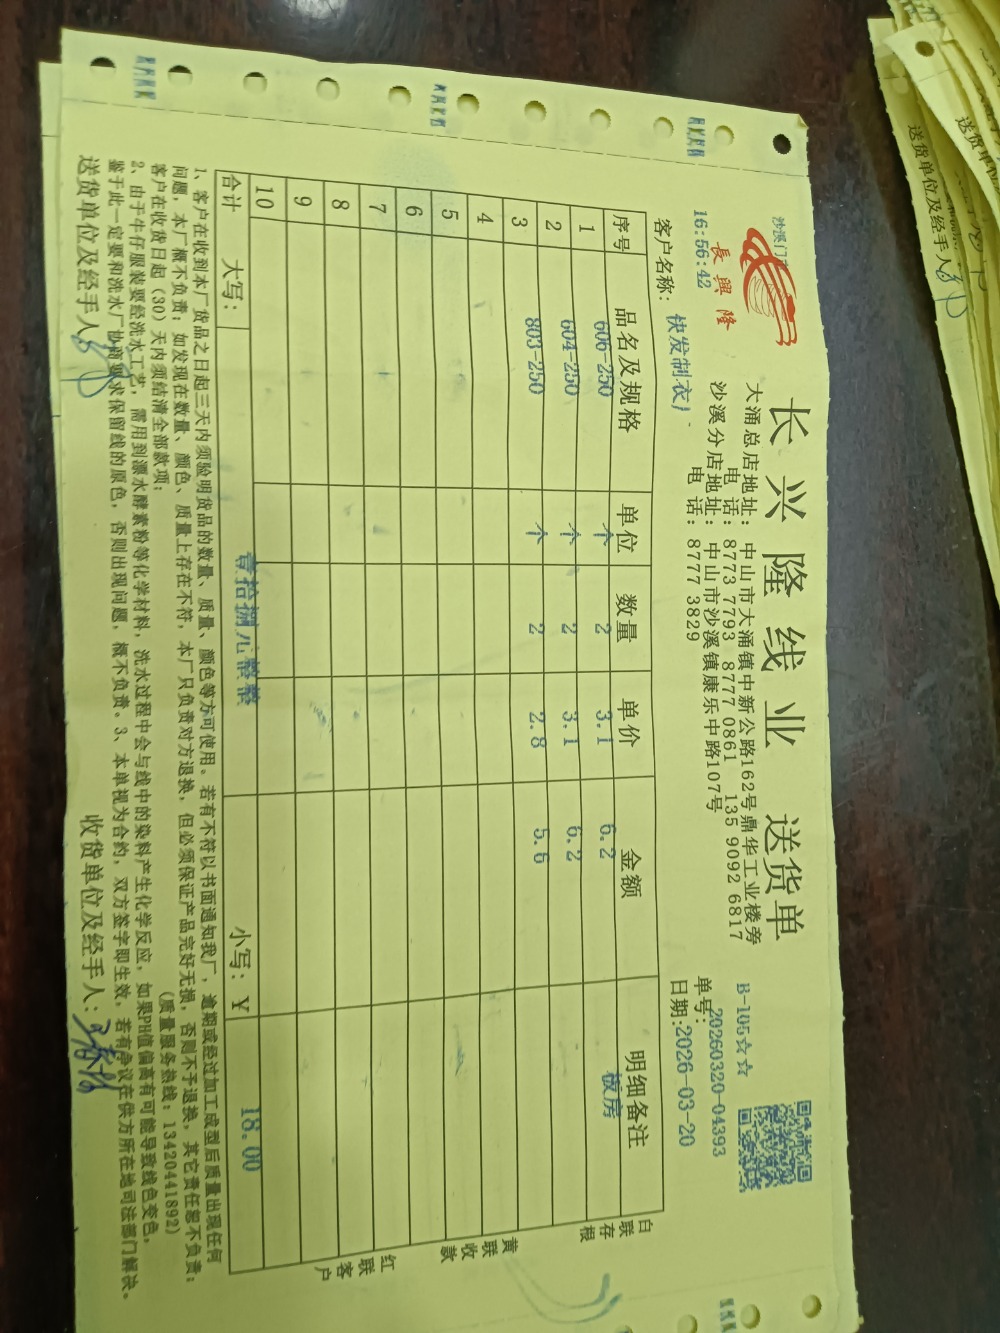 沙溪门
長興隆
长兴隆线业 送货单
大涌总店地址: 中山市大涌镇中新公路162号鼎华工业楼旁
电 话: 8773 7793 8777 0861 135 9092 6817
沙溪分店地址: 中山市沙溪镇康乐中路107号
电 话: 8777 3829
B-105☆☆
单号: 20260320-04393
日期: 2026-03-20
16:56:42
客户名称: 快发制衣厂
序号 品名及规格 单位 数量 单价 金额 明细备注
1 606-250 个 2 3.1 6.2 板房
2 604-250 个 2 3.1 6.2
3 803-250 个 2 2.8 5.6
4
5
6
7
8
9
10
合计 大写: 壹拾捌元整 小写: ¥ 18.00
白联存根
黄联收款
红联客户
1、客户在收到本厂货品之日起三天内须验明货品的数量、质量、颜色等方可使用。若有不符以书面通知我厂，逾期或经过加工成型后质量出现任何
问题，本厂概不负责；如发现在数量、颜色、质量上存在不符，本厂只负责对方退换，但必须保证产品完好无损，否则不予退换，其它责任恕不负责；
客户在收货日起（30）天内须结清全部款项； (质量服务热线: 13420441892)
2、由于牛仔服装要经洗水工艺，需用到漂水酵素粉等化学材料，洗水过程中会与线中的染料产生化学反应，如果PH值偏高有可能导致线色变色，
鉴于此一定要和洗水厂协商要求保留线的原色，否则出现问题，概不负责。3、本单视为合约，双方签字即生效，若有争议在供方所在地司法部门解决。
送货单位及经手人: 收货单位及经手人:
送货单位及经手人